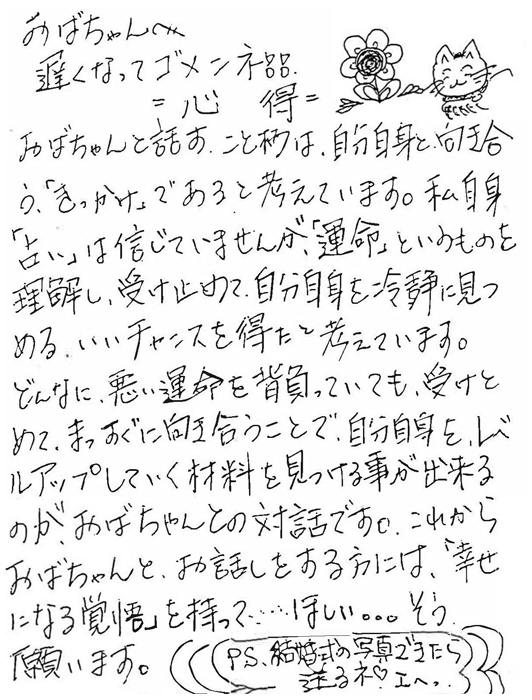 おばちゃんへ…
遅くなってゴメンネ
=心 得=
おばちゃんと話す、こと柄は、自分自身と、向き合
う、「きっかけ」であると考えています。私自身
「占い」は信じていませんが、「運命」というものを
理解し、受け止めて、自分自身を冷静に見つ
める、いいチャンスを得たと考えています。
どんなに、悪い運命を背負っていても、受けと
めて、まっすぐに向き合うことで、自分自身を、レベ
ルアップしていく材料を見つける事が出来る
のが、おばちゃんとの対話です。これから
おばちゃんと、お話しをする方には、「幸せ
になる覚悟」を持って……ほしい。。。そう
願います。
P.S、結婚式の写真できたら
送るネ♡